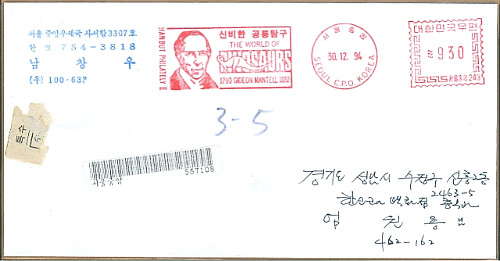 서울 중앙우체국 사서함 3307호
한맥 754-3818
남 창 우
(우) 100-63
HANBUT PHILATELY
신비한 공룡탐구
THE WORLD OF
DINOSAURS
1790 GIDEON MANTELL 1852
서울중앙
30.12.94
SEOUL C.P.O. KOREA
대한민국우편
930
특수
3-5
567108
경기도 성남시 수정구 신흥2동
2463-5
엄 원 용
462-162